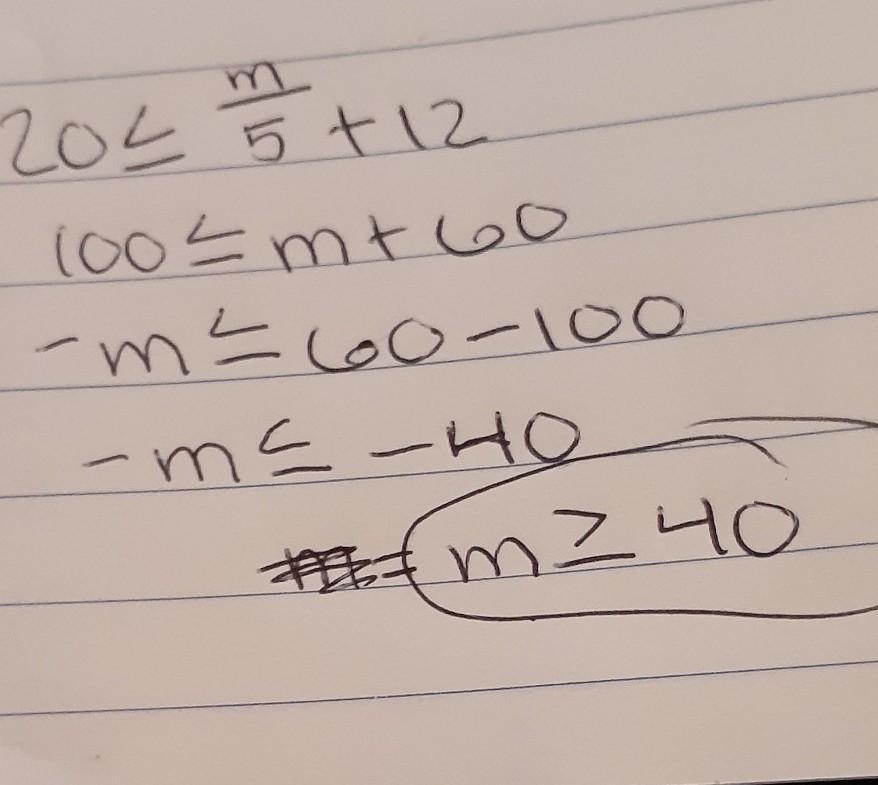 20 ≤ m/5 + 12
100 ≤ m + 60
-m ≤ 60 - 100
-m ≤ -40
m ≥ 40